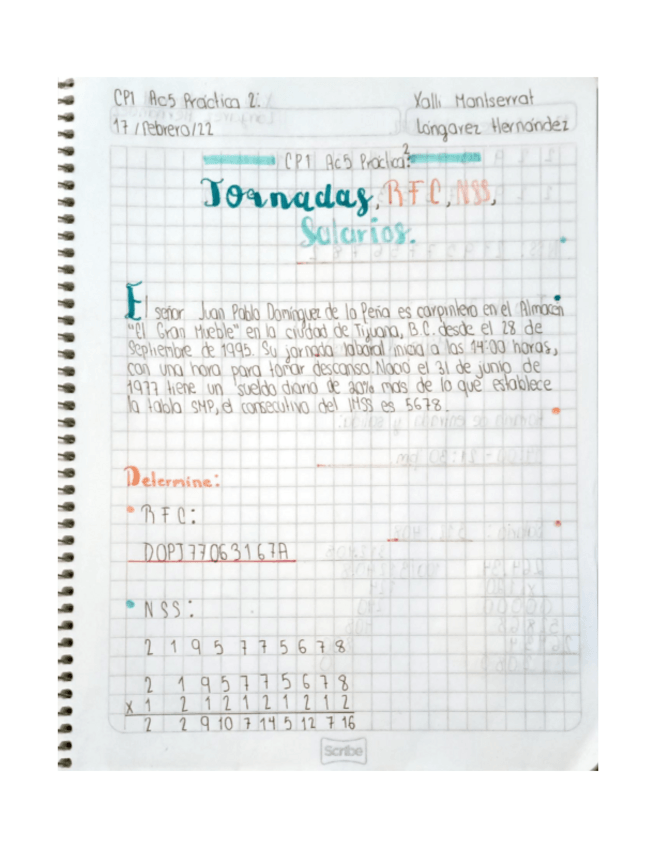 CP1 Ac5 Práctica 2:
Xalli Montserrat
17/febrero/22
Longarez Hernández
CP1 Ac5 Práctica 2
Jornadas, RFC, NSS,
Salarios.
El señor Juan Pablo Domínguez de la Peña es carpintero en el Almacén
"El Gran Mueble" en la ciudad de Tijuana, B.C. desde el 28 de
Septiembre de 1995. Su jornada laboral inicia a las 14:00 horas,
con una hora para tomar descanso. Nació el 31 de junio de
1977 tiene un sueldo diario de 20% mas de lo que establece
la tabla SMP, el consecutivo del IMSS es 5678.
Determine:
• RFC:
DOPJ77063167A
• NSS:
2 1 9 5 7 7 5 6 7 8
2 1 9 5 7 7 5 6 7 8
x 1 2 1 2 1 2 1 2 1 2
2 2 9 10 7 14 5 12 7 16
Scribe